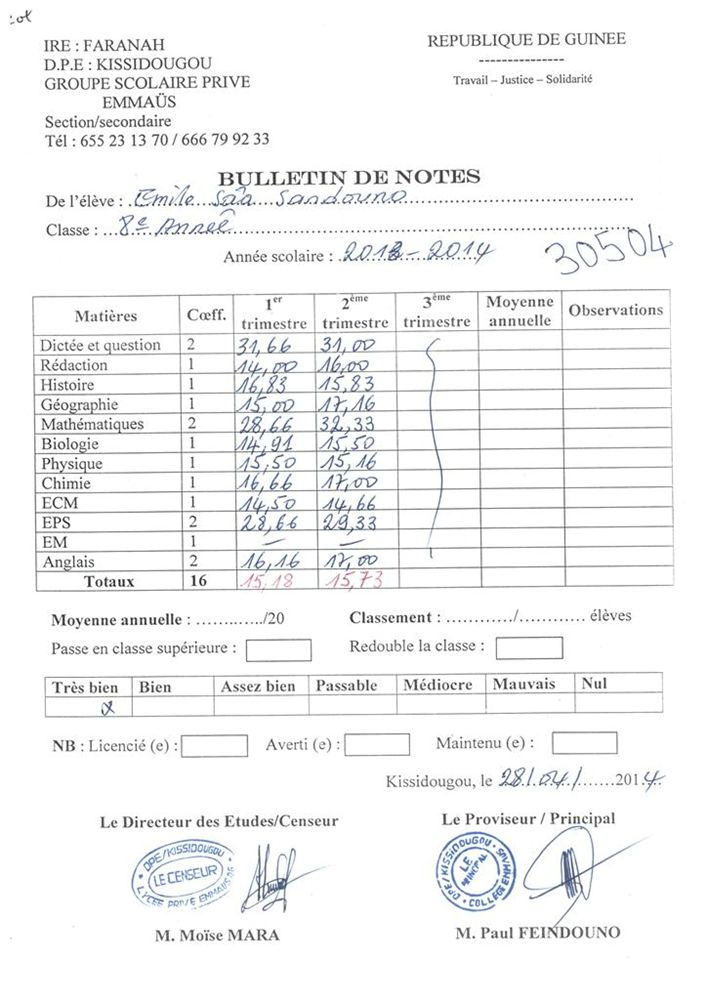 IRE : FARANAH
D.P.E : KISSIDOUGOU
GROUPE SCOLAIRE PRIVE
EMMAÜS
Section/secondaire
Tél : 655 23 13 70 / 666 79 92 33
REPUBLIQUE DE GUINEE
---------------
Travail – Justice – Solidarité
BULLETIN DE NOTES
De l'élève : Emile Saa Sandouno
Classe : 8e Année
Année scolaire : 2013-2014
30504
Matières Cœff. 1er trimestre 2ème trimestre 3ème trimestre Moyenne annuelle Observations
Dictée et question 2 31,66 31,00
Rédaction 1 14,00 16,00
Histoire 1 16,83 15,83
Géographie 1 15,00 17,16
Mathématiques 2 28,66 32,33
Biologie 1 14,91 15,50
Physique 1 15,50 15,16
Chimie 1 16,66 17,00
ECM 1 14,50 14,66
EPS 2 28,66 29,33
EM 1 – –
Anglais 2 16,16 17,00
Totaux 16 15,18 15,73
Moyenne annuelle : .........../20 Classement : ............/............ élèves
Passe en classe supérieure : Redouble la classe :
Très bien Bien Assez bien Passable Médiocre Mauvais Nul
NB : Licencié (e) : Averti (e) : Maintenu (e) :
Kissidougou, le 28/04/......2014
Le Directeur des Etudes/Censeur
Le Proviseur / Principal
DPE/KISSIDOUGOU
LE CENSEUR
LYCEE PRIVE EMMAUS
DPE/KISSIDOUGOU
LE PRINCIPAL
M. Moïse MARA
M. Paul FEINDOUNO